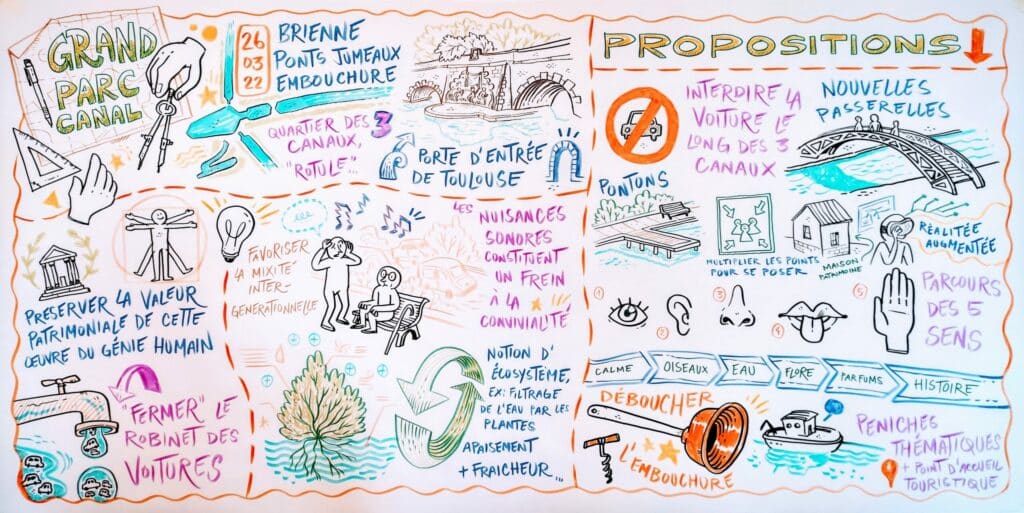 GRAND
PARC
CANAL
26
03
22
BRIENNE
PONTS JUMEAUX
EMBOUCHURE
QUARTIER DES 3
CANAUX,
"ROTULE"...
PORTE D'ENTRÉE
DE TOULOUSE
PRESERVER LA VALEUR
PATRIMONIALE DE CETTE
ŒUVRE DU GÉNIE HUMAIN
"FERMER" LE
ROBINET DES
VOITURES
FAVORISER
LA MIXITÉ
INTER-
GENERATIONNELLE
LES NUISANCES
SONORES
CONSTITUENT
UN FREIN
À LA
CONVIVIALITÉ
NOTION D'
ÉCOSYSTÈME,
EX: FILTRAGE
DE L'EAU PAR LES
PLANTES
APAISEMENT
+ FRAICHEUR...
PROPOSITIONS
INTERDIRE LA
VOITURE LE
LONG DES 3
CANAUX
NOUVELLES
PASSERELLES
PONTONS
MULTIPLIER LES POINTS
POUR SE POSER
MAISON
PATRIMOINE
RÉALITÉE
AUGMENTÉE
1
2
3
4
5
PARCOURS
DES 5
SENS
CALME
OISEAUX
EAU
FLORE
PARFUMS
HISTOIRE
DÉBOUCHER
L'EMBOUCHURE
PENICHES
THÉMATIQUES
+ POINT D'ACCUEIL
TOURISTIQUE